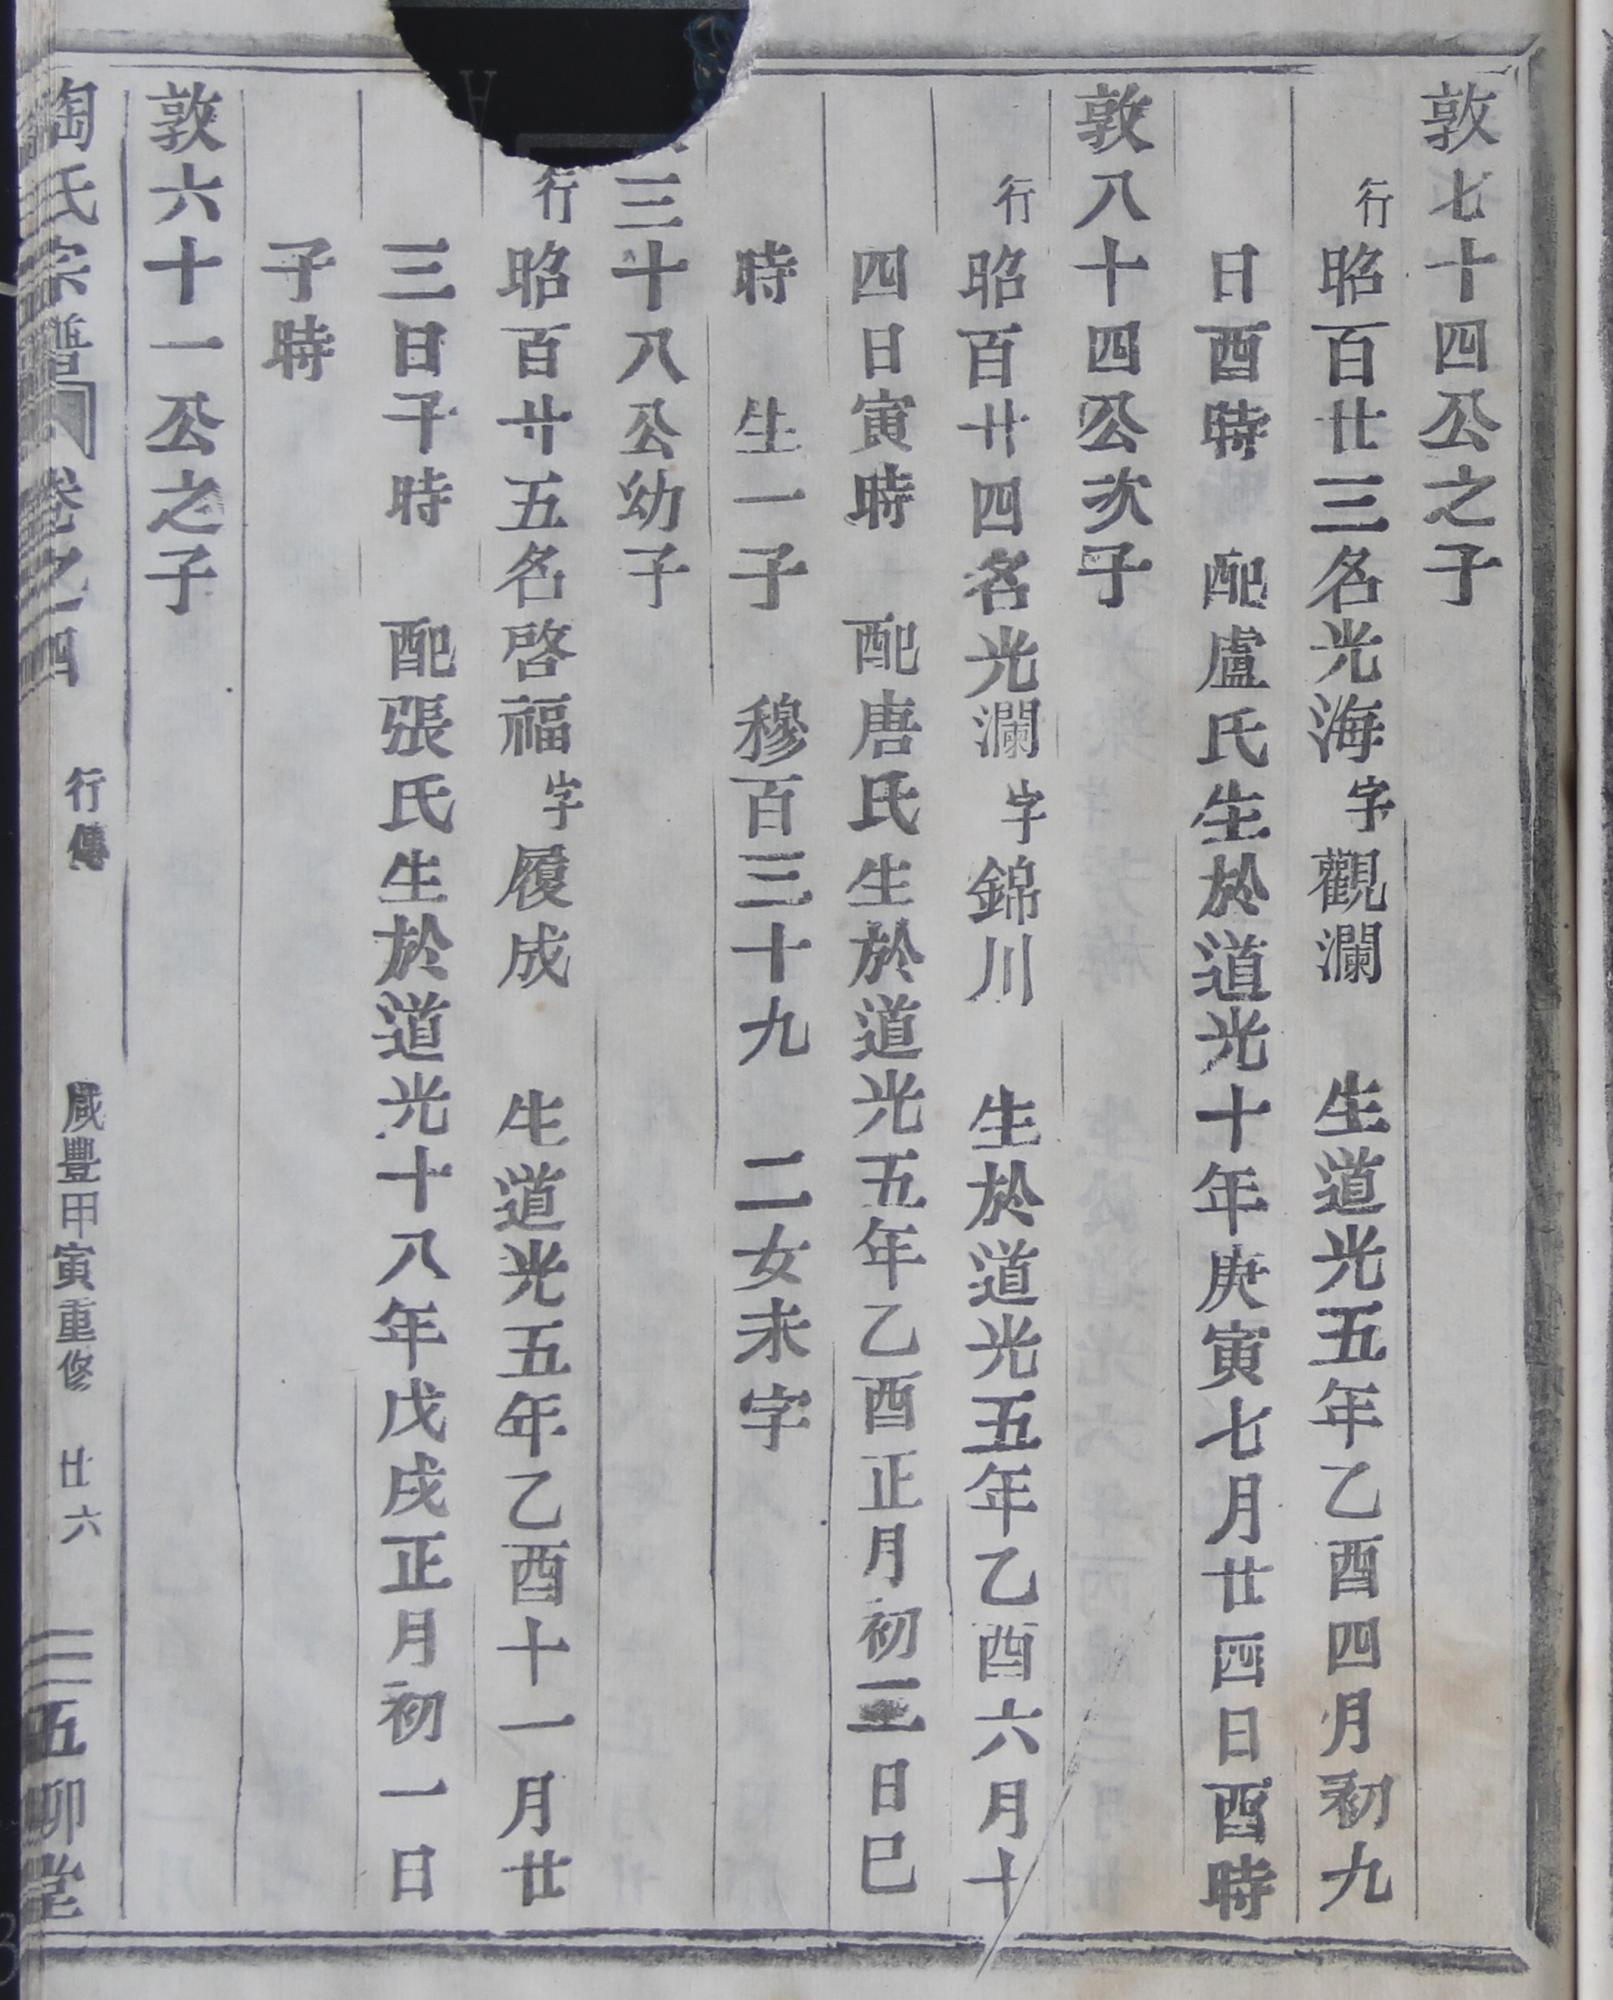 敦七十四公之子
行昭百廿三名光海字觀瀾　生道光五年乙酉四月初九
日酉時　配盧氏生於道光十年庚寅七月廿四日酉時
敦八十四公次子
行昭百廿四名光瀾字錦川　生於道光五年乙酉六月十
四日寅時　配唐氏生於道光五年乙酉正月初三日巳
時　生一子　穆百三十九　二女未字
三十八公幼子
行昭百廿五名啓福字履成　生道光五年乙酉十一月廿
三日子時　配張氏生於道光十八年戊戌正月初一日
子時
敦六十一公之子
陶氏宗譜　卷之四　行傳　咸豐甲寅重修　廿六　五柳堂